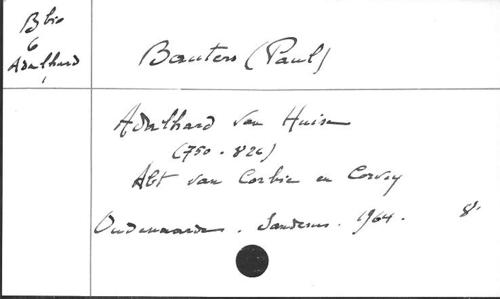 B bio
6
Adalhard
Bauters (Paul)
Adalhard van Huise
(750 - 826)
Abt van Corbie en Corvey
Oudenaarde. Sanderus. 1964. 8°